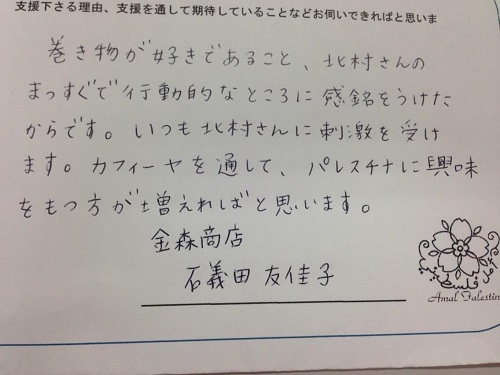 支援下さる理由、支援を通して期待していることなどお伺いできればと思いま
巻き物が好きであること、北村さんの
まっすぐで行動的なところに感銘をうけた
からです。いつも北村さんに刺激を受け
ます。カフィーヤを通して、パレスチナに興味
をもつ方が増えればと思います。
金森商店
石義田 友佳子
Amal Falestin